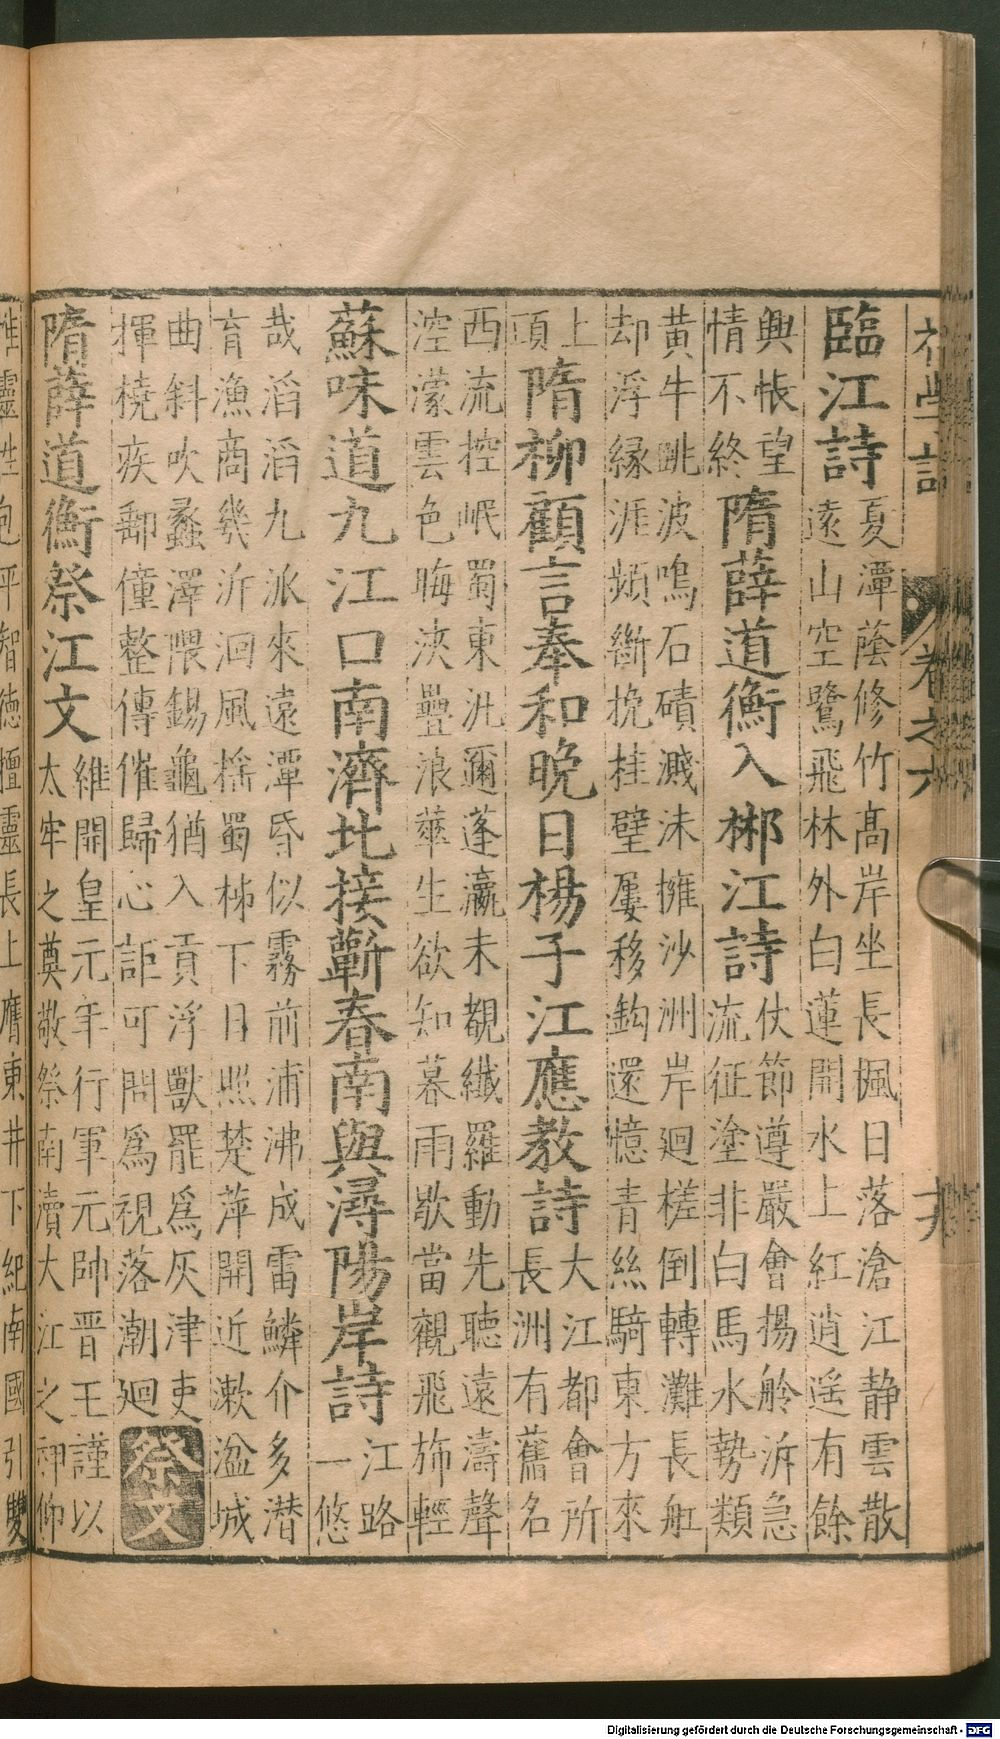 初學記 卷之六 十六
臨江詩 夏潭蔭修竹高岸坐長楓日落滄江静雲散
遠山空鷺飛林外白蓮開水上紅逍遥有餘
興悵望
情不終 隋薛道衡入郴江詩 仗節遵嚴會揚舲泝急
流征塗非白馬水勢類
黄牛眺波鳴石磧濺沫擁沙洲岸迴槎倒轉灘長舡
却浮縁涯頻斷挽桂壁屢移鈎還憶青絲騎東方來
上
頭 隋柳顧言奉和晚日楊子江應教詩 大江都會所
長洲有舊名
西流控岷蜀東泚邇蓬瀛未覩纖羅動先聽遠濤聲
涳濛雲色晦浹疊浪華生欲知暮雨歇當觀飛斾輕
蘇味道九江口南濟北接蘄春南與潯陽岸詩 江路
一悠
哉滔滔九派來遠潭昏似霧前浦沸成雷鱗介多潜
育漁商幾泝洄風摇蜀柹下日照楚萍開近漱湓城
曲斜吹蠡澤隈錫龜猶入貢浮獸罷爲灰津吏
揮橈疾郵僮整傳催歸心詎可問爲視落潮廻 祭文
隋薛道衡祭江文 維開皇元年行軍元帥晋王謹以
太牢之奠敬祭南瀆大江之神仰
惟靈性包平智德擅靈長上膺東井下紀南國引雙
Digitalisierung gefördert durch die Deutsche Forschungsgemeinschaft - DFG